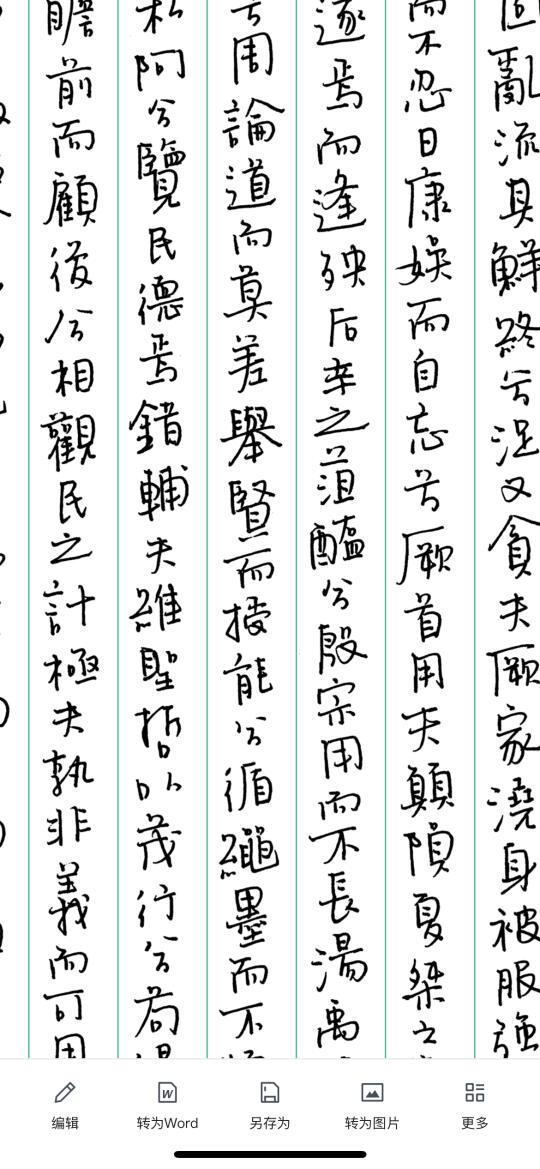 固亂流其鮮終兮浞又貪夫厥家澆身被服強
而不忍日康娛而自忘兮厥首用夫顛隕夏桀之
遂焉而逢殃后辛之菹醢兮殷宗用而不長湯禹
兮周論道而莫差舉賢而授能兮循繩墨而不
私阿兮覽民德焉錯輔夫維聖哲以茂行兮苟得
瞻前而顧後兮相觀民之計極夫孰非義而可用
编辑
转为Word
另存为
转为图片
更多